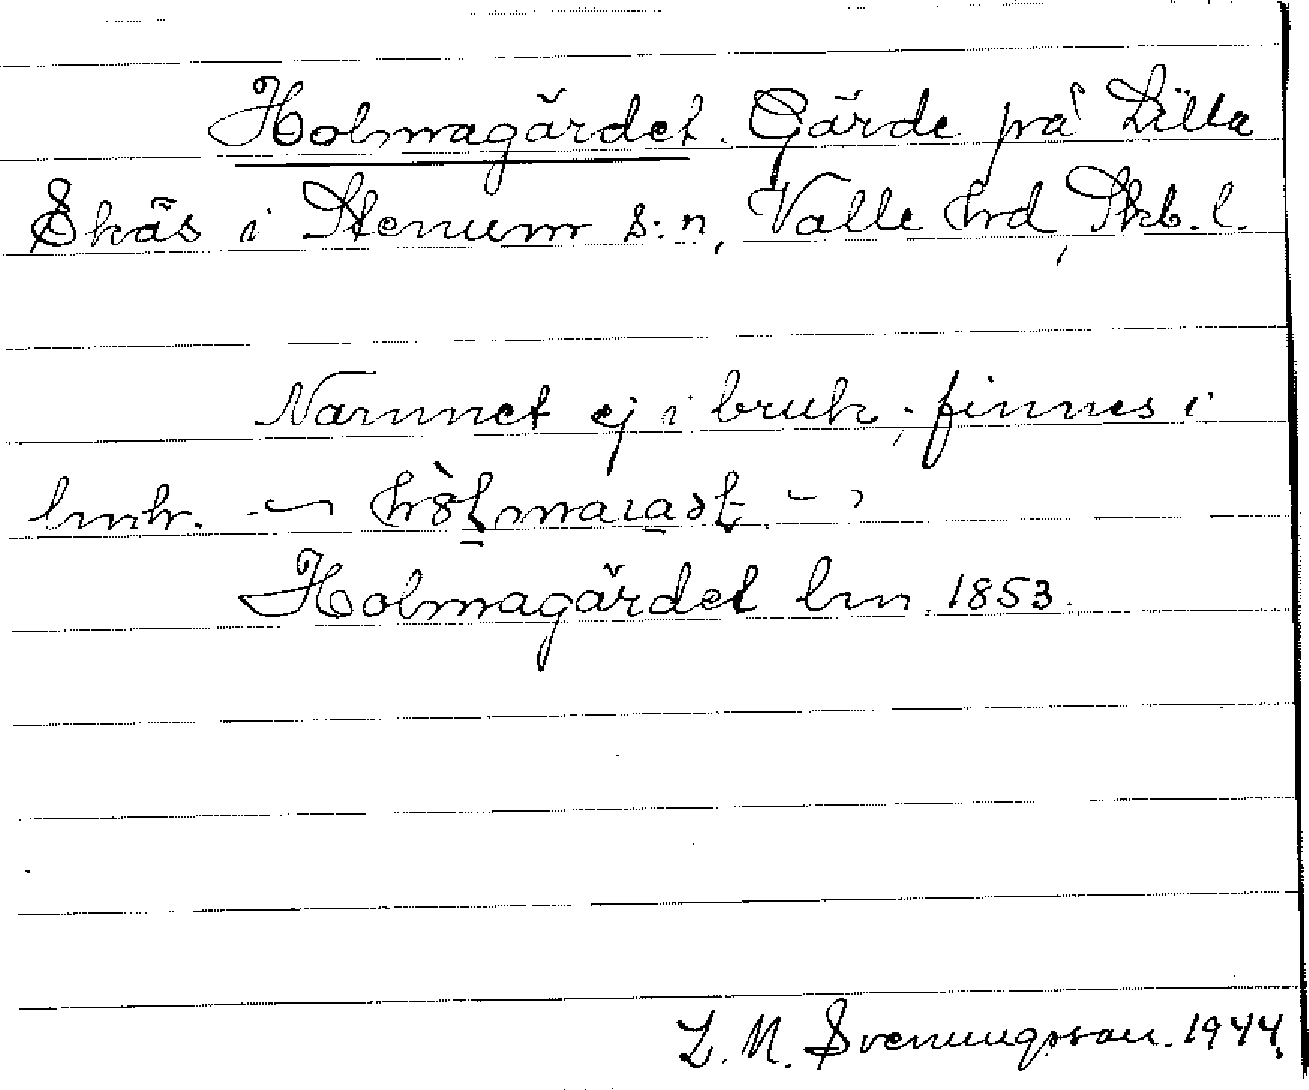 Holmagärdet. Gärde på Lilla
Skäs i Stenum s:n, Valle hrd, Skb. l.
Namnet ej i bruk; finnes i
lmh.
Holmagärdet lm 1853.
L. M. Svenungsson. 1944.